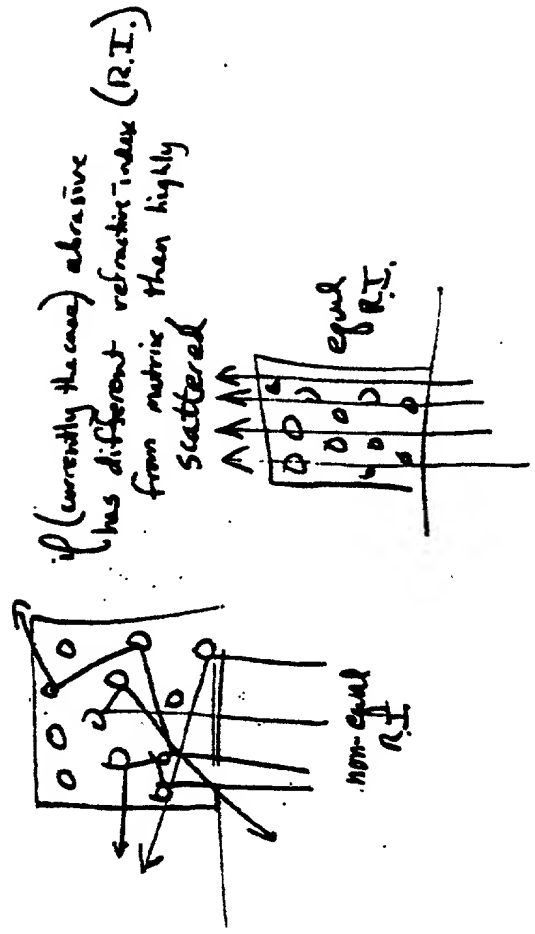 if (currently the case) abrasive
has different refractive-index (R.I.)
from matrix then highly
scattered
non-equal
R.I.
equal
R.I.